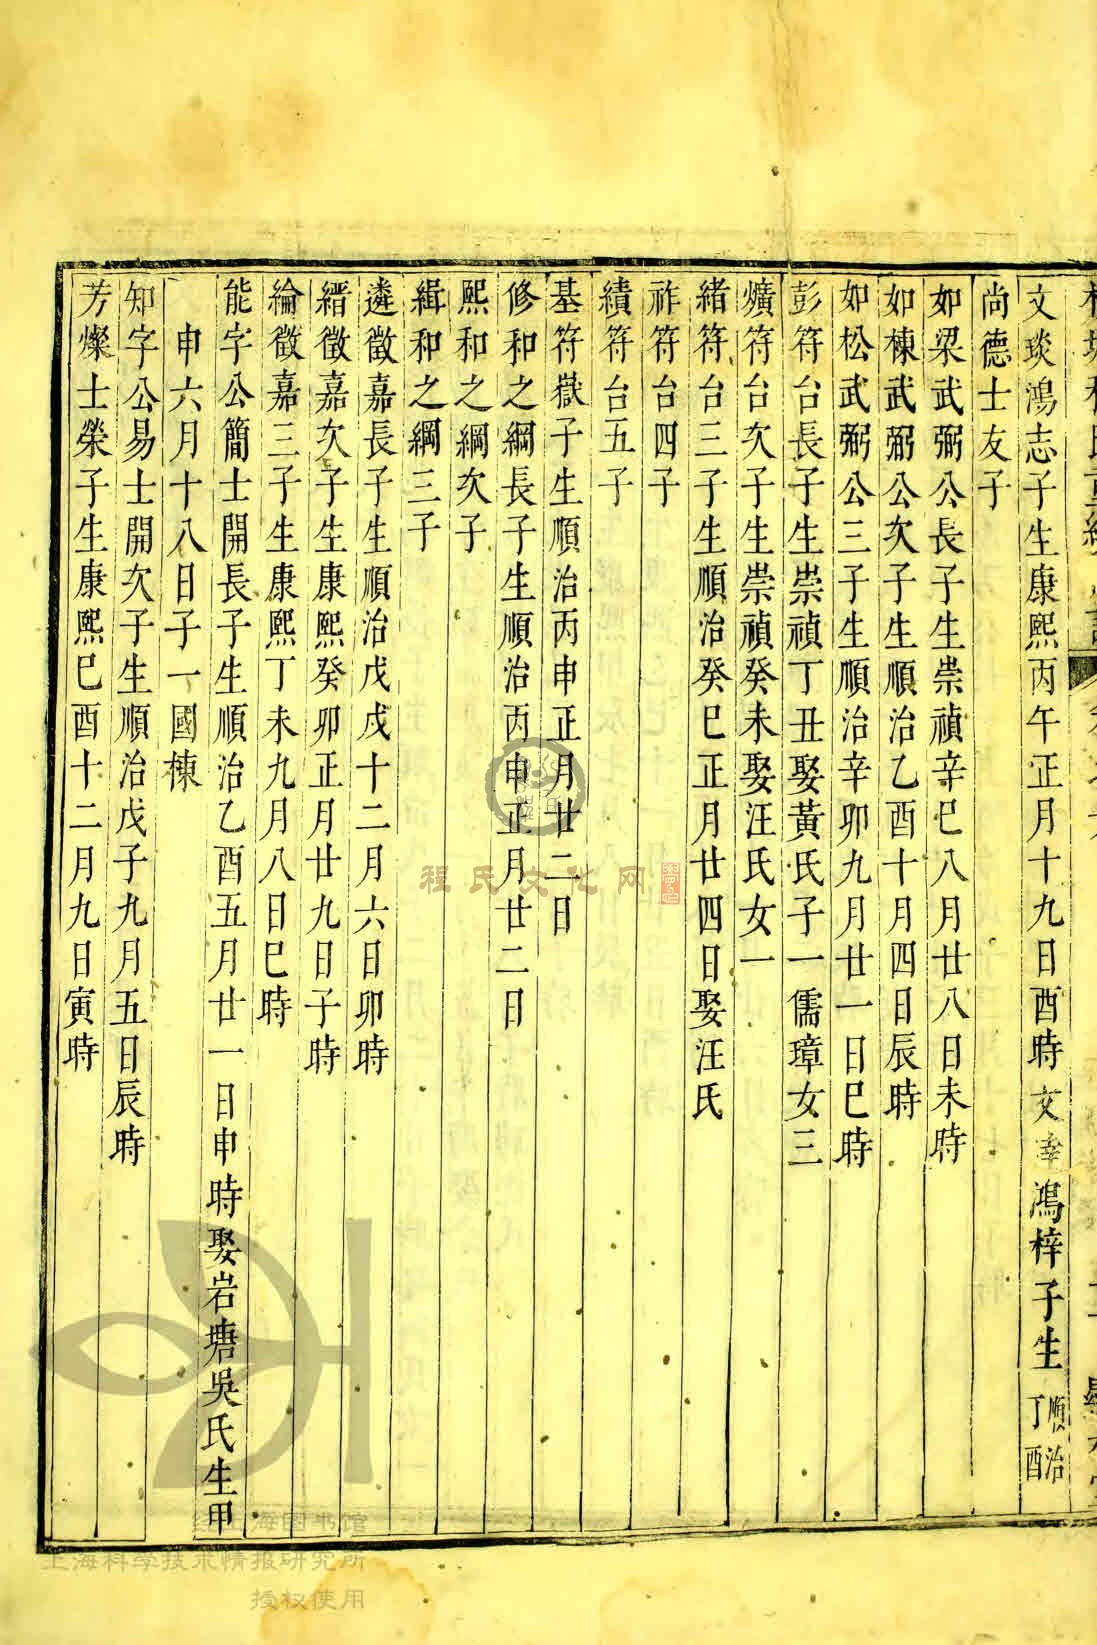 文琰鴻志子生康熙丙午正月十九日酉時文幸鴻梓子生順治丁酉
尚德士友子
如梁武弼公長子生崇禎辛巳八月廿八日未時
如棟武弼公次子生順治乙酉十月四日辰時
如松武弼公三子生順治辛卯九月廿一日巳時
彭符台長子生崇禎丁丑娶黃氏子一儒璋女三
爌符台次子生崇禎癸未娶汪氏女一
緒符台三子生順治癸巳正月廿四日娶汪氏
祚符台四子
績符台五子
基符嶽子生順治丙申正月廿二日
修和之綱長子生順治丙申正月廿二日
熙和之綱次子
緝和之綱三子
遴徵嘉長子生順治戊戌十二月六日卯時
縉徵嘉次子生康熙癸卯正月廿九日子時
綸徵嘉三子生康熙丁未九月八日巳時
能字公簡士開長子生順治乙酉五月廿一日申時娶岩塘吳氏生甲
申六月十八日子一國棟
知字公易士開次子生順治戊子九月五日辰時
芳燦士榮子生康熙己酉十二月九日寅時
程氏文化网
经上海图书馆
上海科学技术情报研究所
授权使用